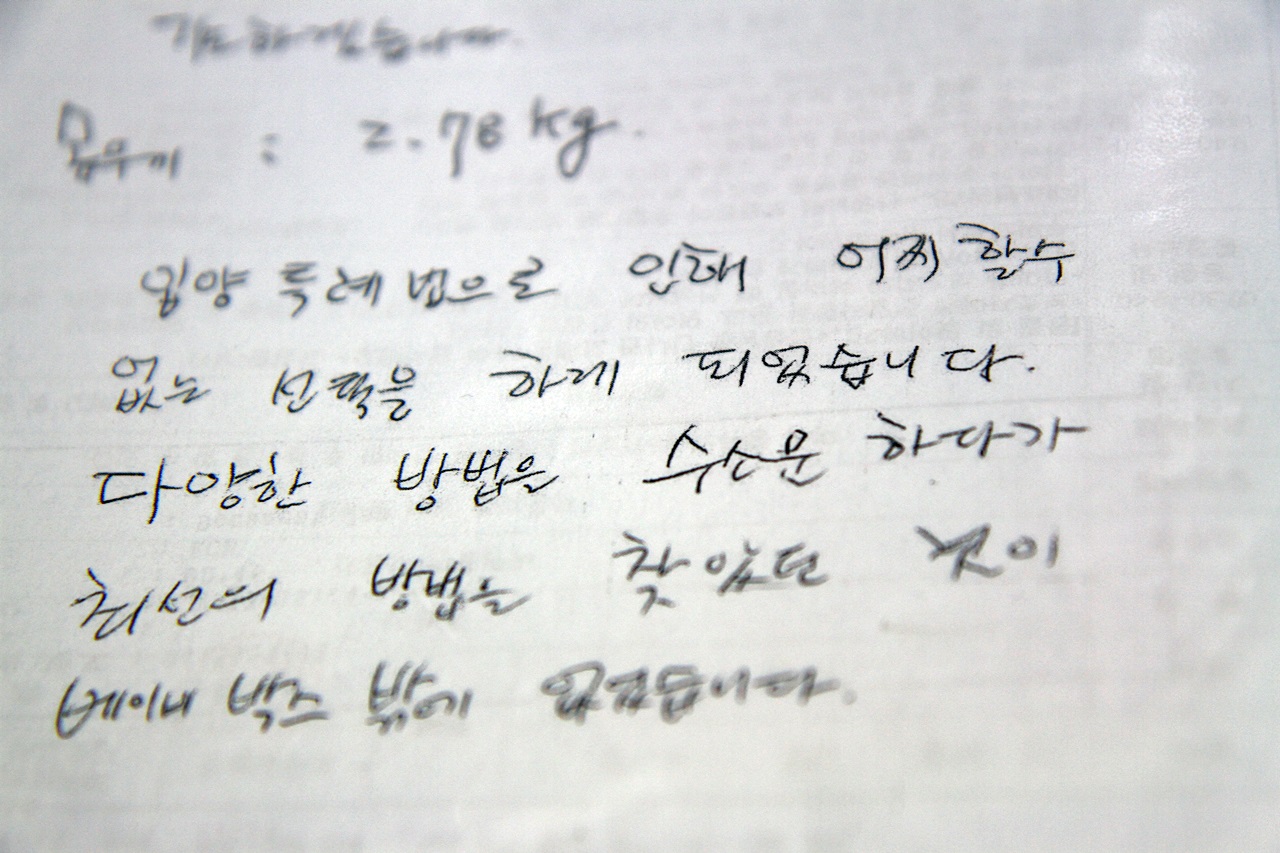 기도하겠습니다.
몸무게 : 2.78 kg.
입양 특례법으로 인해 어찌 할수
없는 선택을 하게 되었습니다.
다양한 방법을 수소문 하다가
최선의 방법을 찾았던 것이
베이비 박스 밖에 없었습니다.